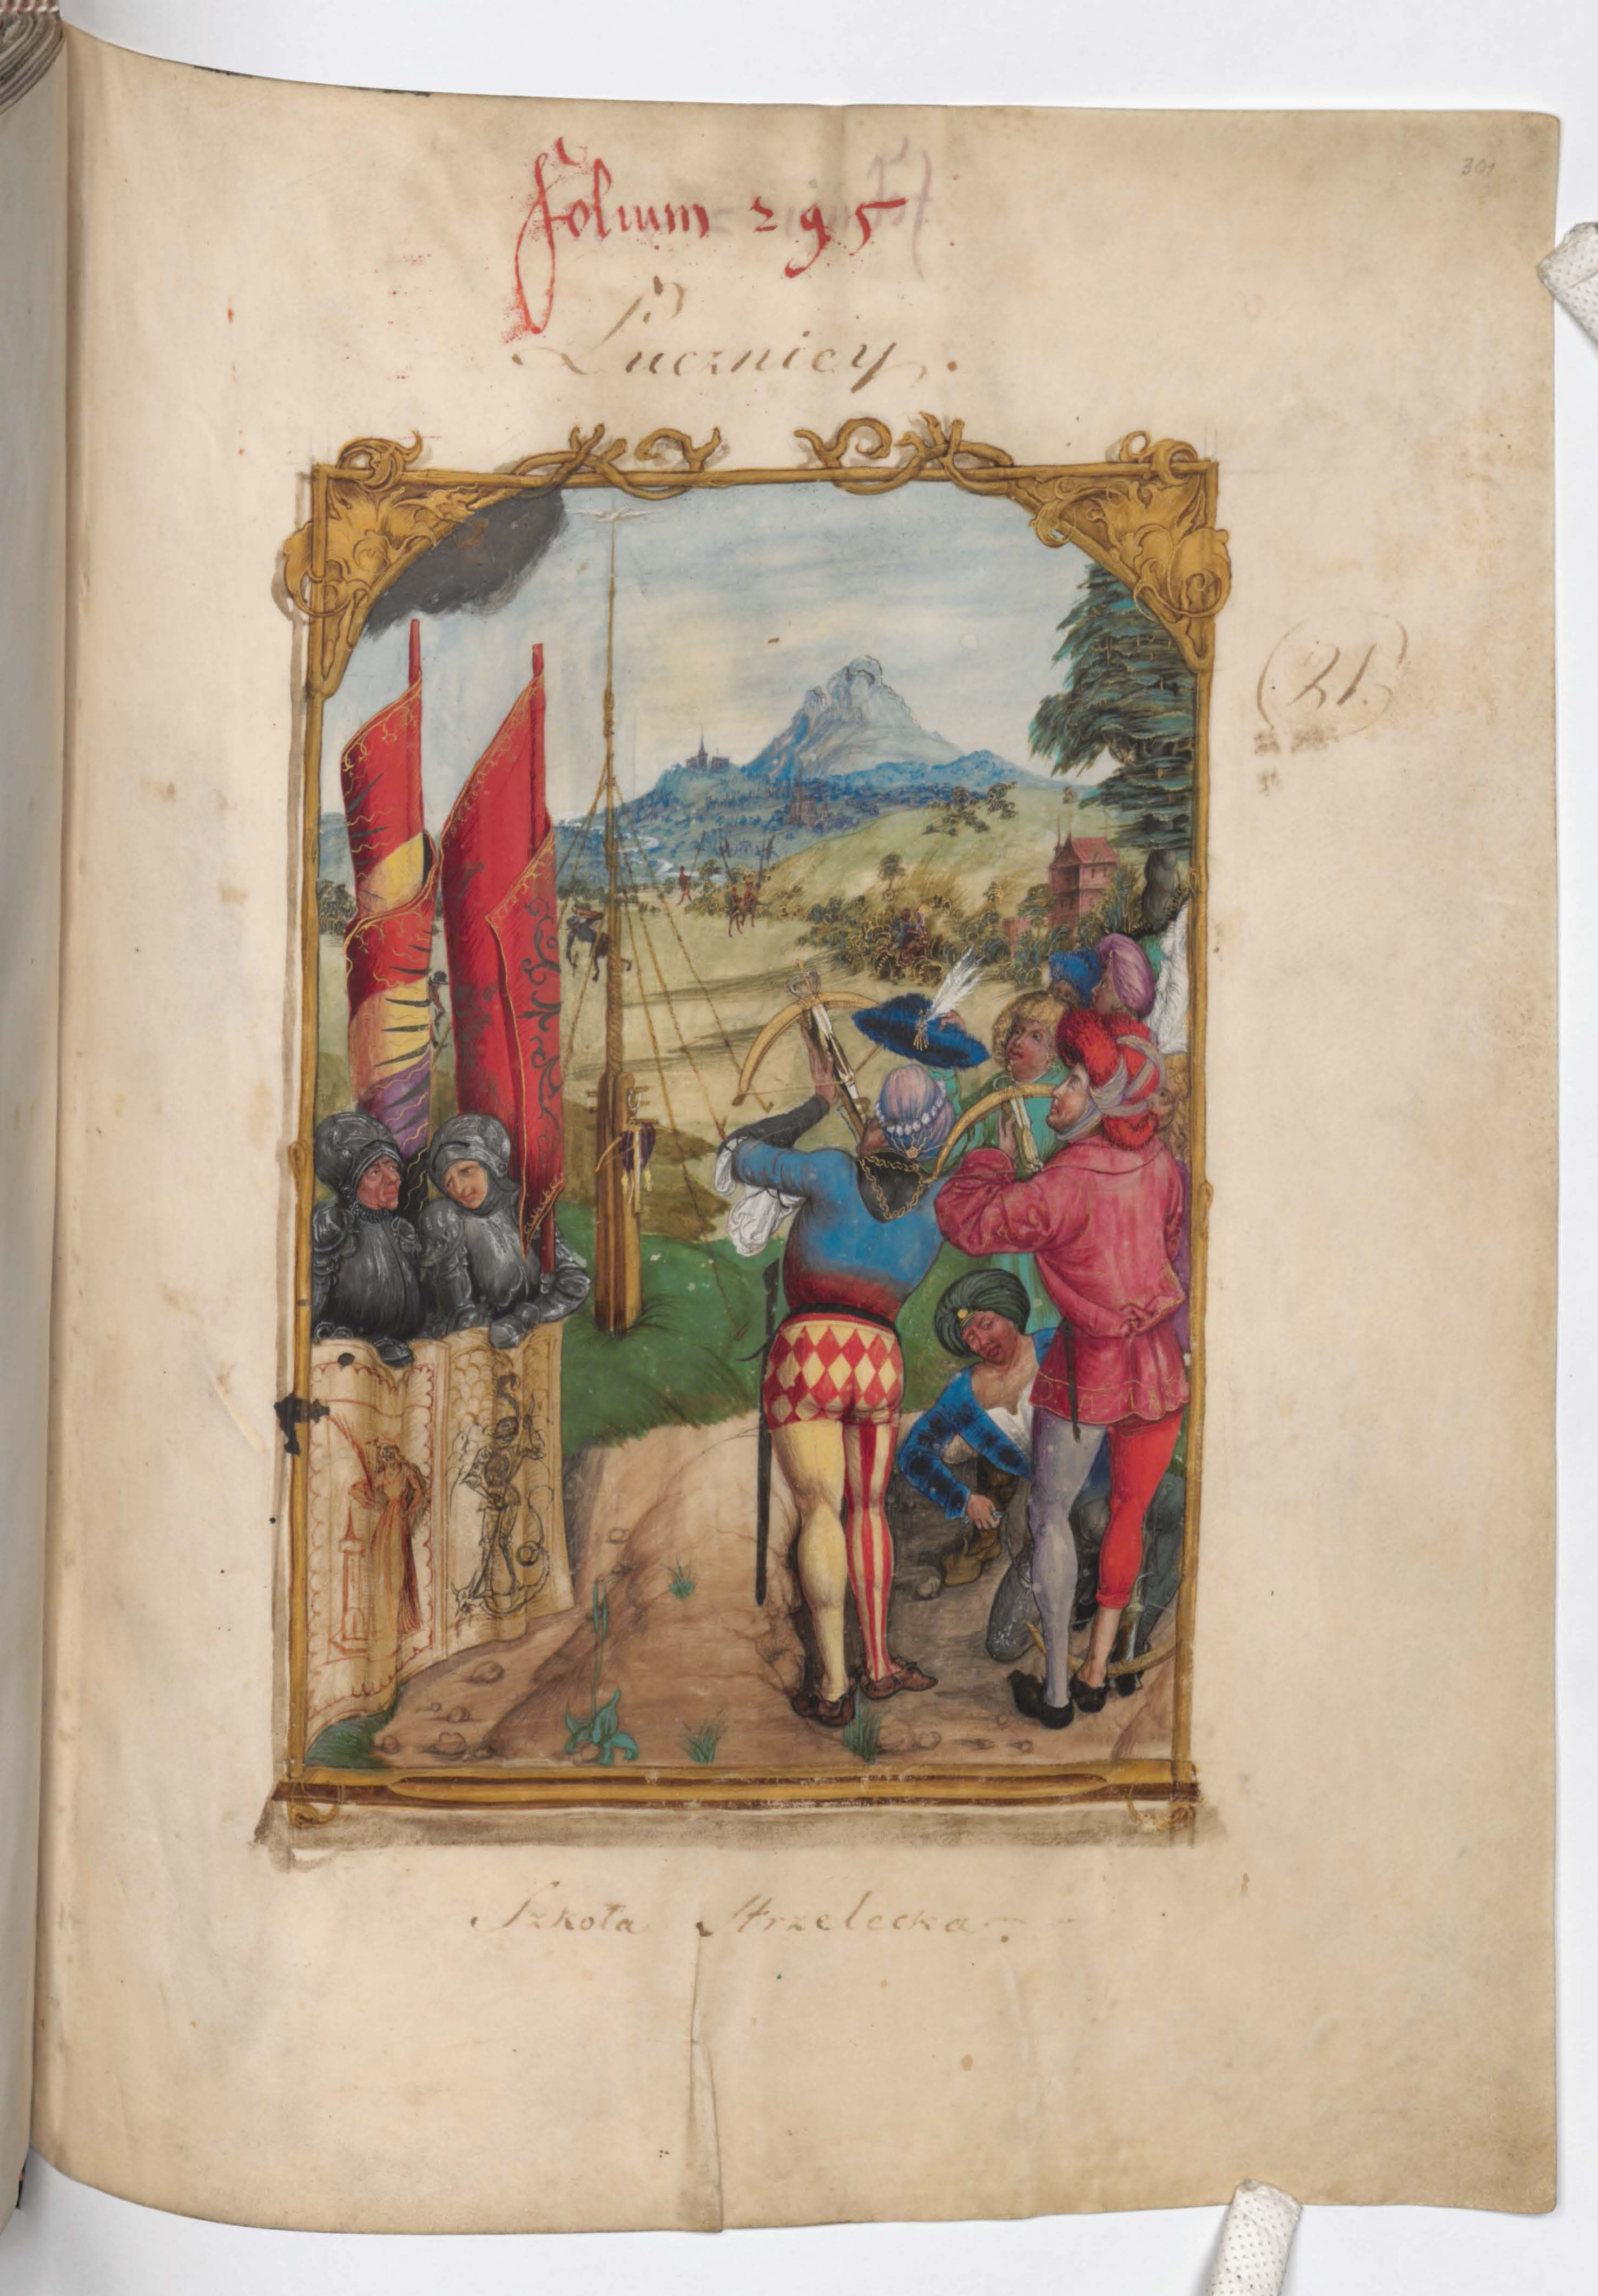 301
folium 295
Łucznicy.
21.
Szkoła Strzelecka.